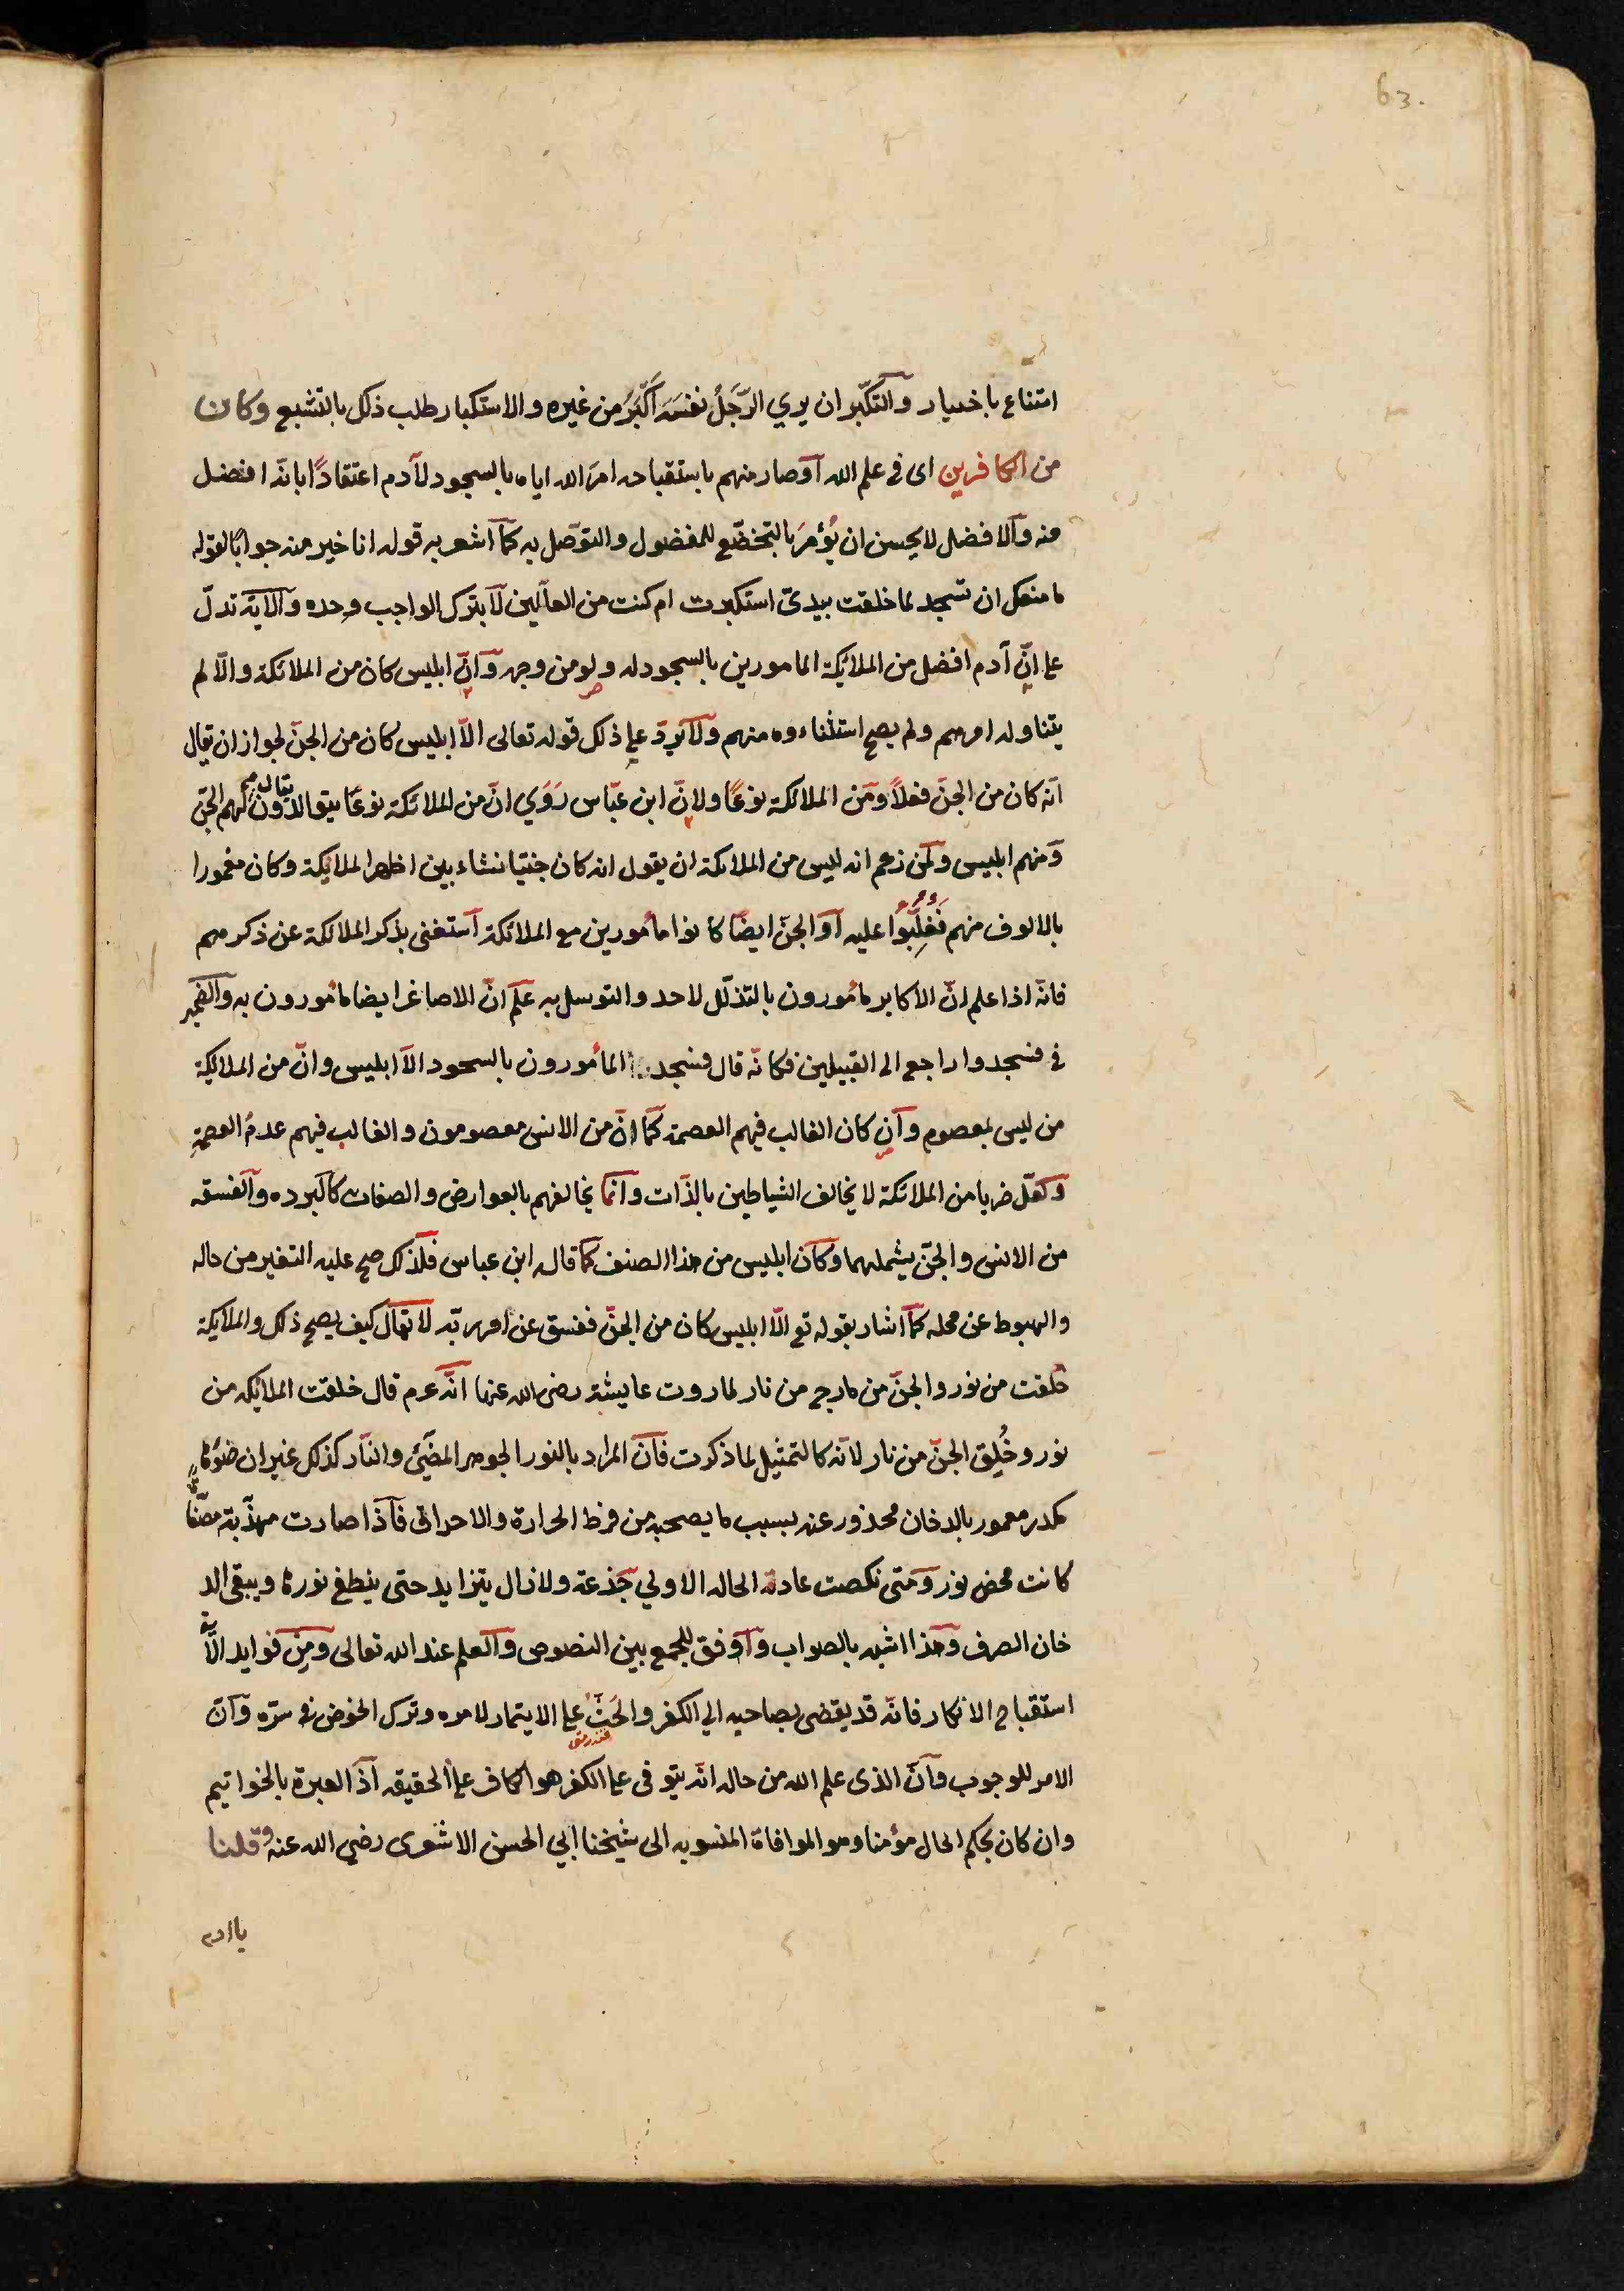 63.
امتناع باختيار والتكبّر ان يري الرّجلُ نفسَه اَكْبَرُ من غيره والاستكبار طلب ذلك بالتشبع وكان
من الكافرين اى فى علم الله او صار منهم باستقباحه امرَ الله اياه بالسجود لآدم اعتقادًا بانّه افضل
منه والافضل لا يحسن ان يُؤمرَ بالتخضّع للمفضول والتوصّل به كما اشعر به قوله انا خير منه جوابًا لقوله
ما منعك ان تسجد لما خلقت بيدىّ استكبرت ام كنت من العالين لا بترك الواجب وحده والآية تدلّ
على انّ آدم افضل من الملائكة المامورين بالسجود له ولو من وجه وانّ ابليس كان من الملائكة والّا لم
يتناوله امرهم ولم يصح استثناءوه منهم ولا يردّ على ذلك قوله تعالى الّا ابليس كان من الجنّ لجواز ان يقال
انّه كان من الجنّ فعلاً ومن الملائكة نوعًا ولانّ ابن عبّاس رَوَي انّ من الملائكة نوعًا يتوالدون يقال لهم الجنّ
ومنهم ابليس ولمن زعم انه ليس من الملائكة ان يقول انه كان جنّيا نشاء بين اظهر الملائكة وكان مغمورا
بالالوف منهم فَغُلِّبُوا عليه او الجنّ ايضًا كانوا مأمورين مع الملائكة استغنى بذكر الملائكة عن ذكرهم
فانّه اذا علم انّ الاكابر مأمورون بالتذلّل لاحد والتوسل به علم انّ الاصاغر ايضا مأمورون به والضمير
فى فسجدوا راجع الى القبيلين فكانّه قال فسجد المأمورون بالسجود الّا ابليس وانّ من الملائكة
من ليس بمعصوم وان كان الغالب فيهم العصمة كما انّ من الانس معصومون والغالب فيهم عدمُ العصمةِ
ولعلّ ضربا من الملائكة لا يخالف الشياطين بالذّات وانما يخالفهم بالعوارض والصفات كالبرده والفسقه
من الانس والجنّ يشملهما وكان ابليس من هذا الصنف كما قال ابن عباس فلذلك صح عليه التغير من حاله
والهبوط عن محله كما اشار بقوله تع الّا ابليس كان من الجنّ ففسق عن امر ربّه لا يقال كيف يصح ذلك والملائكة
خلقت من نور والجنّ من مارج من نار لما روت عايشة رضى الله عنها انّه عم قال خلقت الملائكه من
نور وخُلِق الجنّ من نار لانّه كالتمثيل لما ذكرت فانّ المراد بالنور الجوهر المضيّئ والنّار كذلك غير ان ضوْءها
مكدر مغمور بالدخان محذور عنه بسبب ما يصحبه من فرط الحرارة والاحراق فاذا صارت مهذّبة مصفّاة
كانت محض نور ومتى نكصت عادت الحاله الاولي جَذعَة ولا زال يتزايد حتى ينطفئ نورها ويبقى الد
خان الصرف وهذا اشبه بالصواب واوفق للجمع بين النصوص والعلم عند الله تعالى ومن فوايد الآية
استقباح الانكار فانّه قد يفضى بصاحبه الي الكفر والحَثّ على الايتمار لامره وترك الخوض فى سرّه وانّ
الامر للوجوب وانّ الذى علم الله من حاله انّه يتوفى على الكفر هو الكافر على الحقيقه اذ العبرة بالخواتيم
وان كان بحكم الحال مؤمنا وهو الموافاة المنسوبه الى شيخنا ابي الحسن الاشعرى رضي الله عنه وقلنا
يا ادم